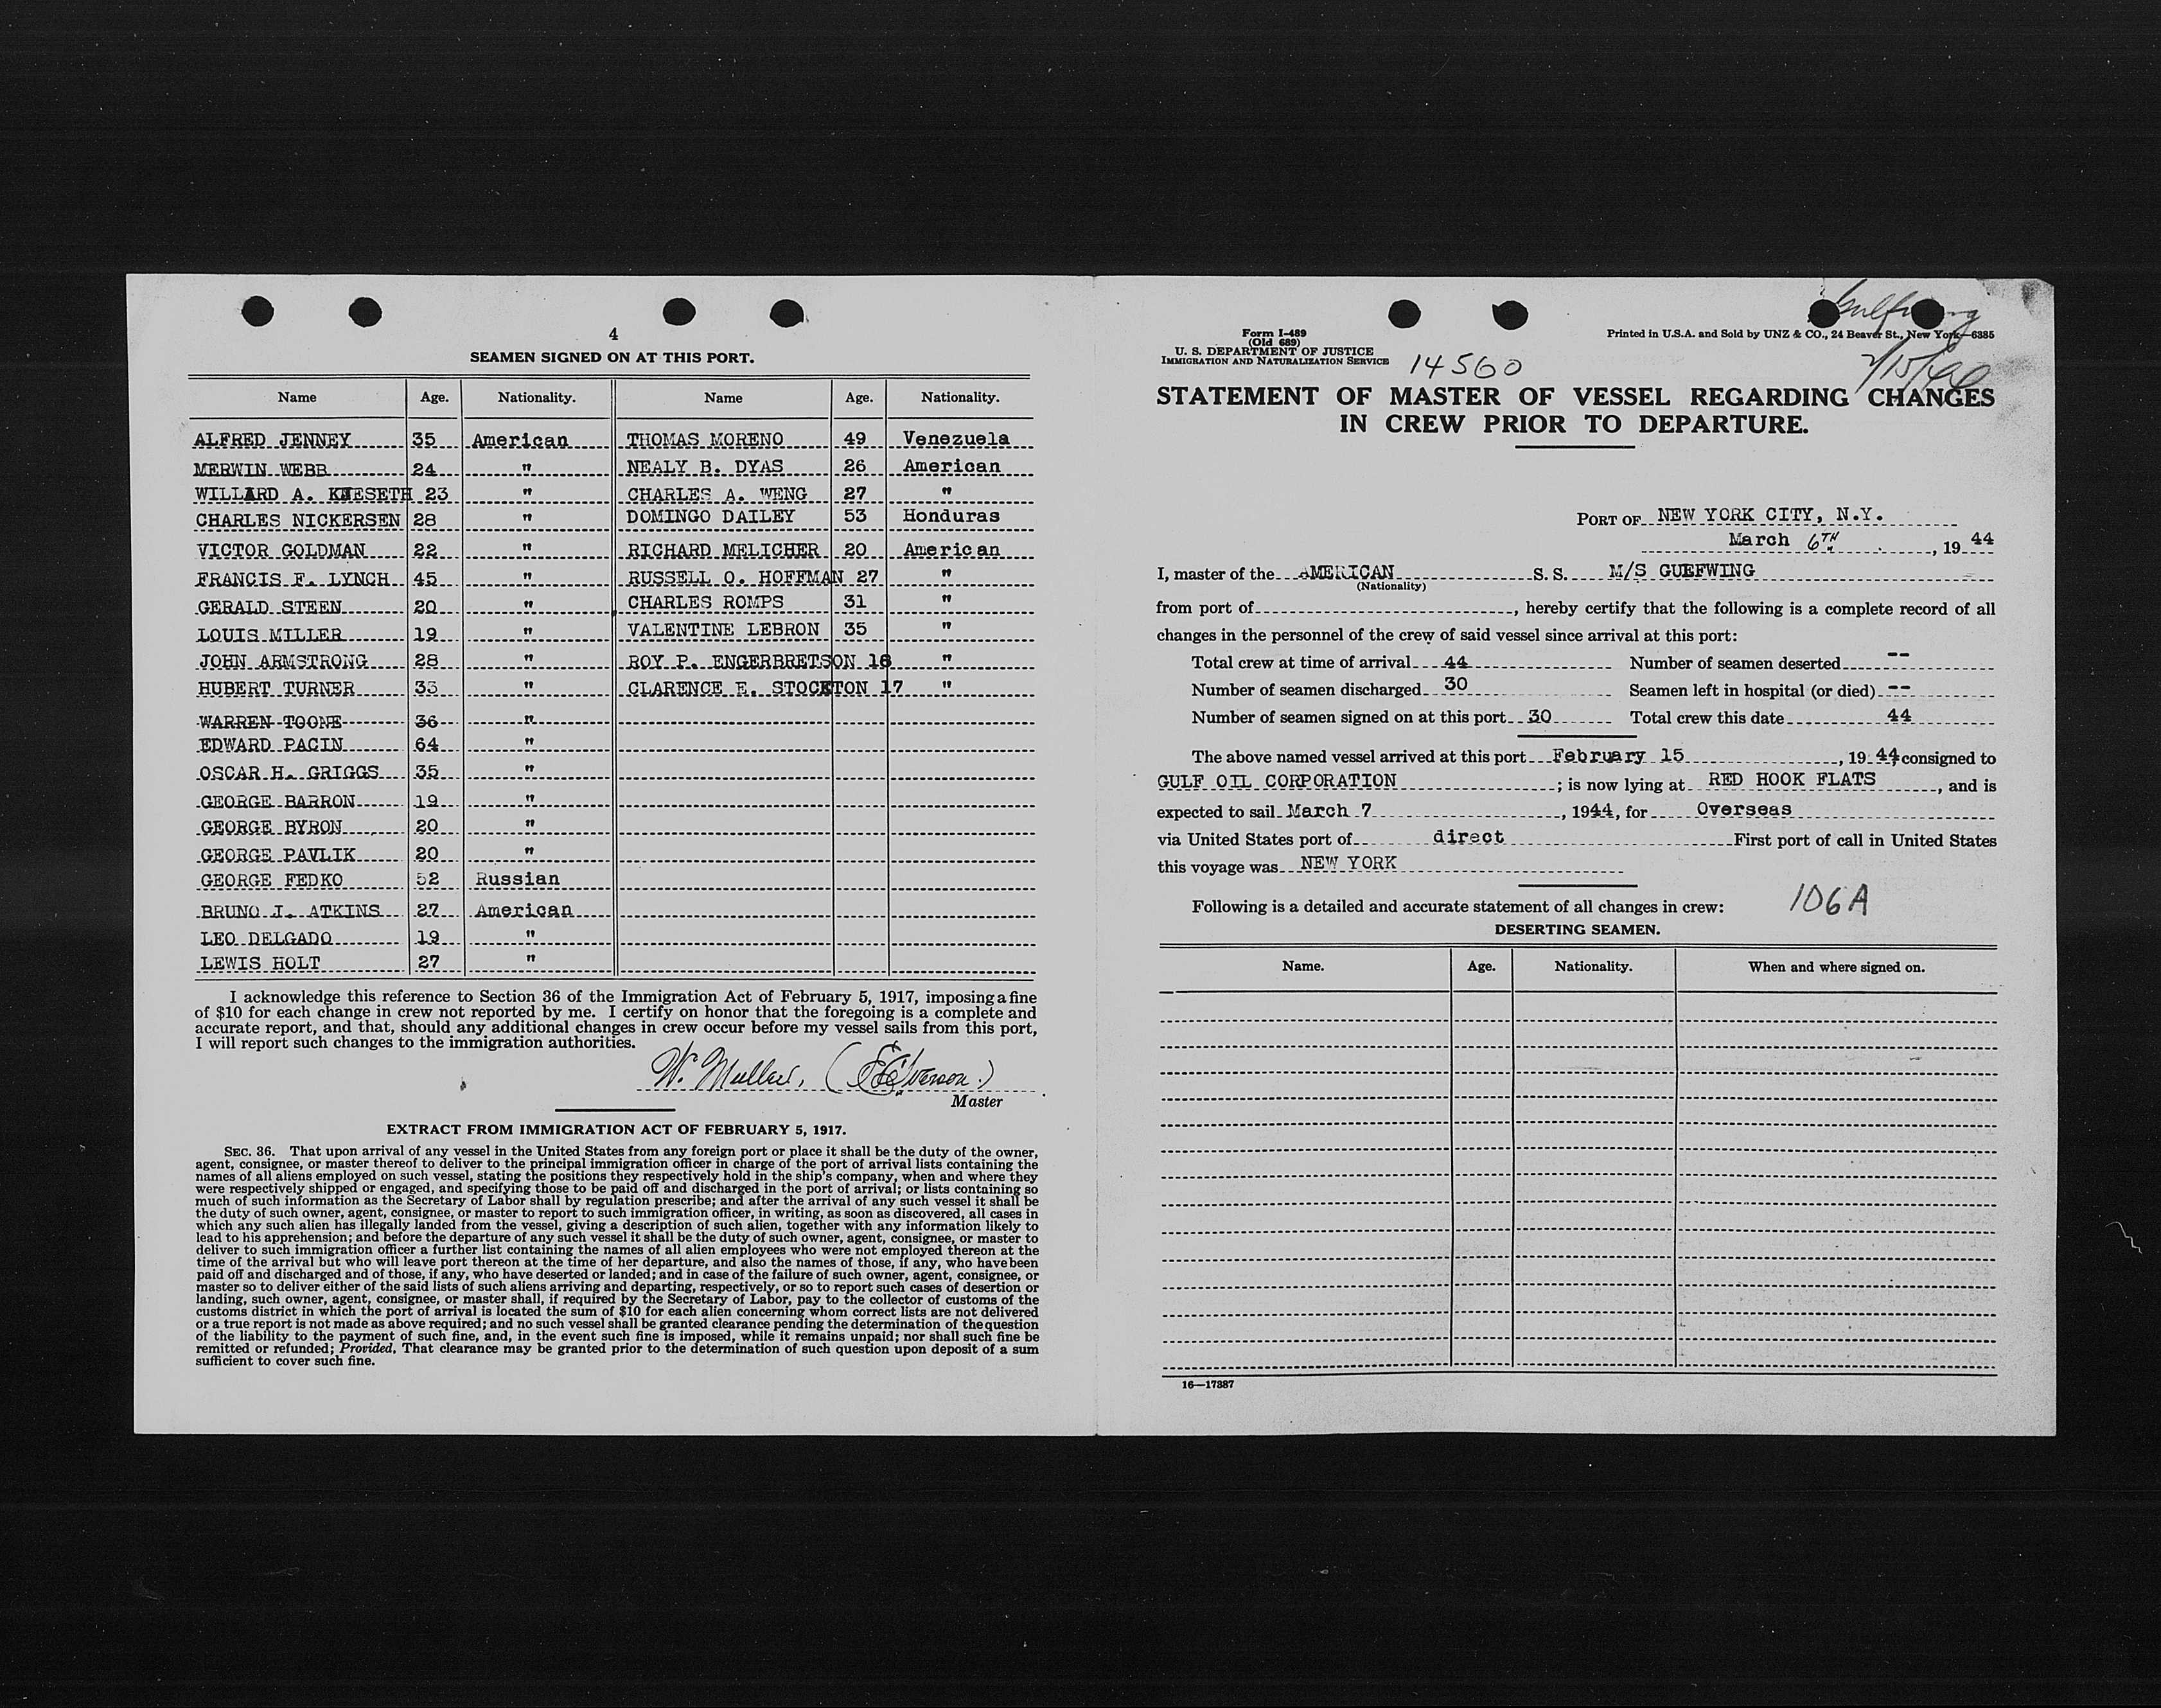 4
SEAMEN SIGNED ON AT THIS PORT.
Name Age. Nationality. Name Age. Nationality.
ALFRED JENNEY 35 American THOMAS MORENO 49 Venezuela
MERWIN WEBB 24 " NEALY B. DYAS 26 American
WILLARD A. KNESETH 23 " CHARLES A. WENG 27 "
CHARLES NICKERSEN 28 " DOMINGO DAILEY 53 Honduras
VICTOR GOLDMAN 22 " RICHARD MELICHER 20 American
FRANCIS F. LYNCH 45 " RUSSELL O. HOFFMAN 27 "
GERALD STEEN 20 " CHARLES ROMPS 31 "
LOUIS MILLER 19 " VALENTINE LEBRON 35 "
JOHN ARMSTRONG 28 " ROY P. ENGERBRETSON 18 "
HUBERT TURNER 35 " CLARENCE E. STOCKTON 17 "
WARREN TOONE 36 "
EDWARD PACIN 64 "
OSCAR H. GRIGGS 35 "
GEORGE BARRON 19 "
GEORGE BYRON 20 "
GEORGE PAVLIK 20 "
GEORGE FEDKO 52 Russian
BRUNO J. ATKINS 27 American
LEO DELGADO 19 "
LEWIS HOLT 27 "
I acknowledge this reference to Section 36 of the Immigration Act of February 5, 1917, imposing a fine
of $10 for each change in crew not reported by me. I certify on honor that the foregoing is a complete and
accurate report, and that, should any additional changes in crew occur before my vessel sails from this port,
I will report such changes to the immigration authorities.
W. Muller,
Master
EXTRACT FROM IMMIGRATION ACT OF FEBRUARY 5, 1917.
SEC. 36. That upon arrival of any vessel in the United States from any foreign port or place it shall be the duty of the owner,
agent, consignee, or master thereof to deliver to the principal immigration officer in charge of the port of arrival lists containing the
names of all aliens employed on such vessel, stating the positions they respectively hold in the ship's company, when and where they
were respectively shipped or engaged, and specifying those to be paid off and discharged in the port of arrival; or lists containing so
much of such information as the Secretary of Labor shall by regulation prescribe; and after the arrival of any such vessel it shall be
the duty of such owner, agent, consignee, or master to report to such immigration officer, in writing, as soon as discovered, all cases in
which any such alien has illegally landed from the vessel, giving a description of such alien, together with any information likely to
lead to his apprehension; and before the departure of any such vessel it shall be the duty of such owner, agent, consignee, or master to
deliver to such immigration officer a further list containing the names of all alien employees who were not employed thereon at the
time of the arrival but who will leave port thereon at the time of her departure, and also the names of those, if any, who have been
paid off and discharged and of those, if any, who have deserted or landed; and in case of the failure of such owner, agent, consignee, or
master so to deliver either of the said lists of such aliens arriving and departing, respectively, or so to report such cases of desertion or
landing, such owner, agent, consignee, or master shall, if required by the Secretary of Labor, pay to the collector of customs of the
customs district in which the port of arrival is located the sum of $10 for each alien concerning whom correct lists are not delivered
or a true report is not made as above required; and no such vessel shall be granted clearance pending the determination of the question
of the liability to the payment of such fine, and, in the event such fine is imposed, while it remains unpaid; nor shall such fine be
remitted or refunded; Provided, That clearance may be granted prior to the determination of such question upon deposit of a sum
sufficient to cover such fine.
Gulfwing
Form I-489
(Old 689)
U. S. DEPARTMENT OF JUSTICE
IMMIGRATION AND NATURALIZATION SERVICE
14560
Printed in U.S.A. and Sold by UNZ & CO., 24 Beaver St., New York—6385
STATEMENT OF MASTER OF VESSEL REGARDING CHANGES
IN CREW PRIOR TO DEPARTURE.
PORT OF NEW YORK CITY, N.Y.
March 6TH, 1944
I, master of the AMERICAN S. S. M/S GUEFWING
(Nationality)
from port of , hereby certify that the following is a complete record of all
changes in the personnel of the crew of said vessel since arrival at this port:
Total crew at time of arrival 44 Number of seamen deserted --
Number of seamen discharged 30 Seamen left in hospital (or died) --
Number of seamen signed on at this port 30 Total crew this date 44
The above named vessel arrived at this port February 15, 1944, consigned to
GULF OIL CORPORATION; is now lying at RED HOOK FLATS, and is
expected to sail March 7, 1944, for Overseas
via United States port of direct First port of call in United States
this voyage was NEW YORK
106A
Following is a detailed and accurate statement of all changes in crew:
DESERTING SEAMEN.
Name. Age. Nationality. When and where signed on.
16—17887